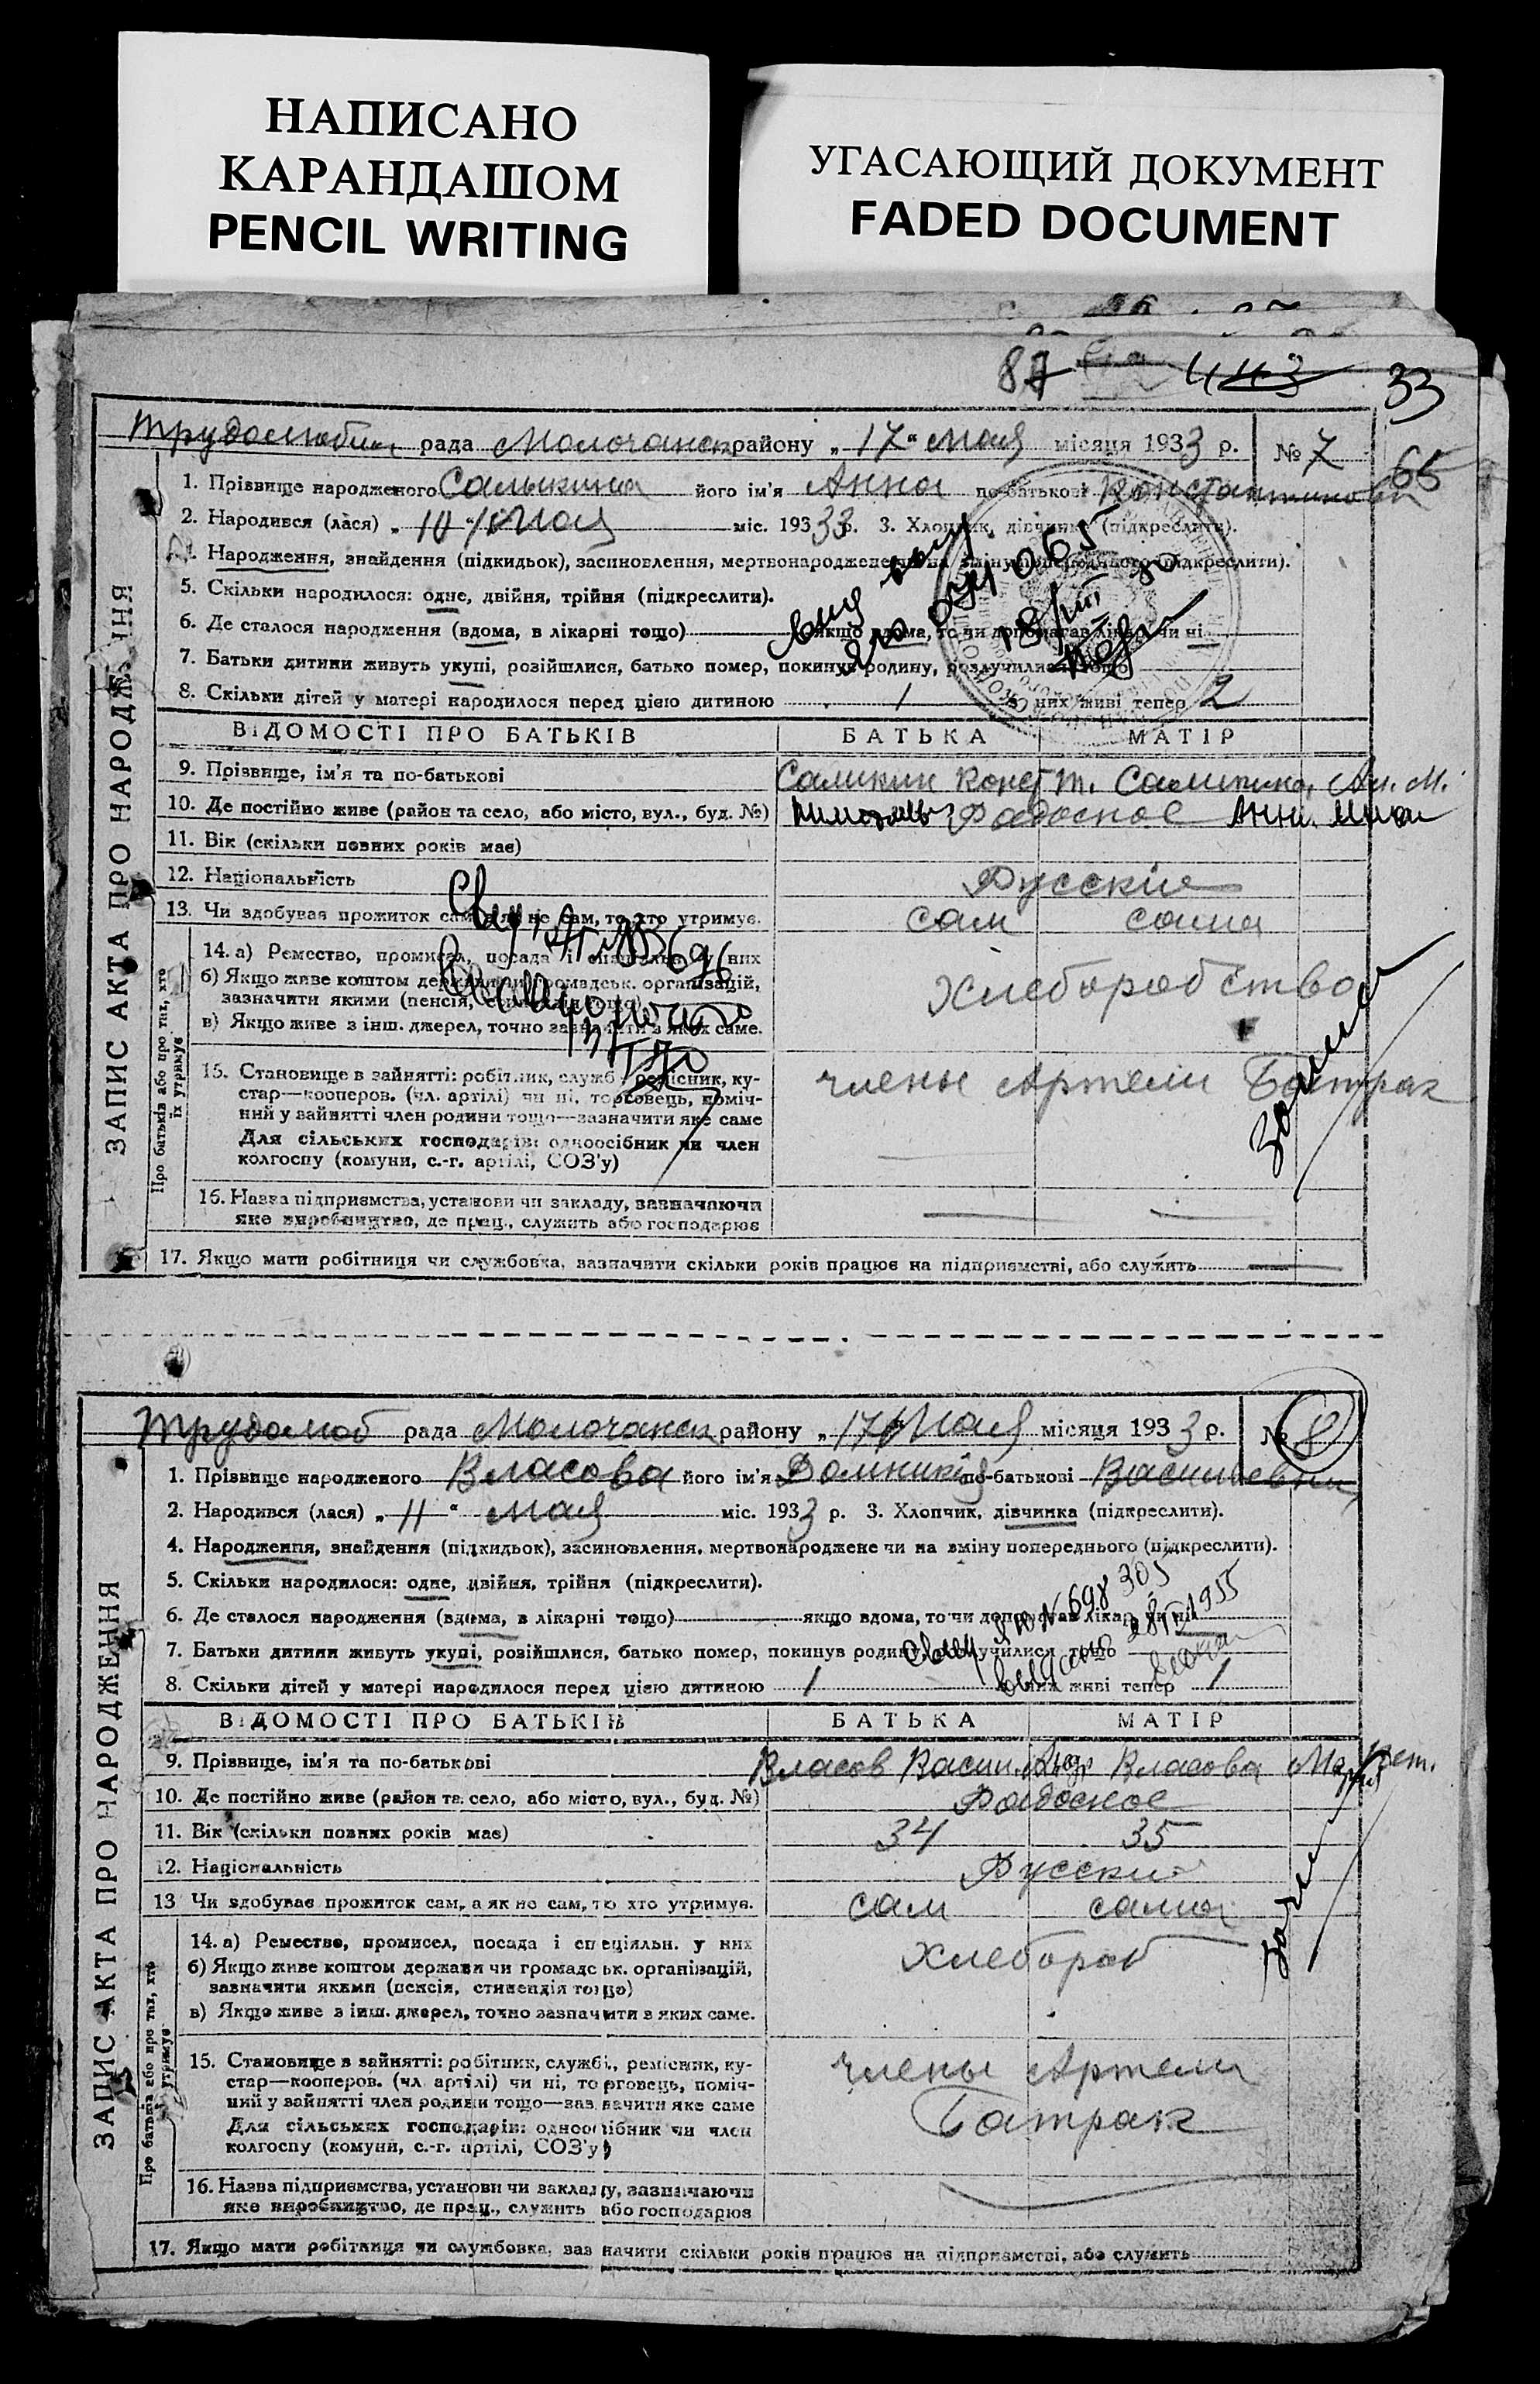 НАПИСАНО
КАРАНДАШОМ
PENCIL WRITING
УГАСАЮЩИЙ ДОКУМЕНТ
FADED DOCUMENT
87 443 33
рада Молочанск району „17“ Мая місяця 1933 р. № 7
65
1. Прізвище народженого його ім'я Анна по-батькові
2. Народився (лася) „10“ Мая міс. 1933 р. 3. Хлопчик, дівчинка (підкреслити).
4. Народження, знайдення (підкидьок), засиновлення, мертвонароджене чи на зміну попереднього (підкреслити).
5. Скільки народилося: одне, двійня, трійня (підкреслити).
6. Де сталося народження (вдома, в лікарні тощо) якщо вдома, то чи допомагав лікар чи ні
7. Батьки дитини живуть укупі, розійшлися, батько помер, покинув родину, розлучилися тощо
8. Скільки дітей у матері народилося перед цією дитиною 1 з них живі тепер 2
ВІДОМОСТІ ПРО БАТЬКІВ БАТЬКА МАТІР
9. Прізвище, ім'я та по-батькові
10. Де постійно живе (район та село, або місто, вул., буд. №)
11. Вік (скільки повних років має)
12. Національність Русские
13. Чи здобував прожиток сам, а як не сам, то хто утримує. сам сама
14. а) Ремество, промисел, посада і спеціяльн. у них
б) Якщо живе коштом держави чи громадськ. організацій,
зазначити якими (пенсія, стипендія тощо)
в) Якщо живе з інш. джерел, точно зазначити з яких саме.
Хлеборобство
15. Становище в зайнятті: робітник, служб., ремісник, ку-
стар—кооперов. (чл. артілі) чи ні, торговець, поміч-
ний у зайнятті член родини тощо—зазначити яке саме
Для сільських господарів: одноосібник чи член
колгоспу (комуни, с.-г. артілі, СОЗ'у)
члены Артели Батрак
16. Назва підприємства, установи чи закладу, зазначаючи
яке виробництво, де прац., служить або господарює
17. Якщо мати робітниця чи службовка, зазначити скільки років працює на підприємстві, або служить
ЗАПИС АКТА ПРО НАРОДЖЕННЯ
Про батьків або про тих, хто
їх утримує
Трудолюб рада Молочанск району „17“ Мая місяця 1933 р. № 8
1. Прізвище народженого Власова його ім'я по-батькові Васильевна
2. Народився (лася) „11“ мая міс. 1933 р. 3. Хлопчик, дівчинка (підкреслити).
4. Народження, знайдення (підкидьок), засиновлення, мертвонароджене чи на зміну попереднього (підкреслити).
5. Скільки народилося: одне, двійня, трійня (підкреслити).
6. Де сталося народження (вдома, в лікарні тощо) якщо вдома, то чи допомагав лікар чи ні
7. Батьки дитини живуть укупі, розійшлися, батько помер, покинув родину, розлучилися тощо
8. Скільки дітей у матері народилося перед цією дитиною 1 з них живі тепер 1
ВІДОМОСТІ ПРО БАТЬКІВ БАТЬКА МАТІР
9. Прізвище, ім'я та по-батькові Власов Васил. Власова
10. Де постійно живе (район та село, або місто, вул., буд. №)
11. Вік (скільки повних років має) 34 35
12. Національність Русские
13 Чи здобував прожиток сам, а як не сам, то хто утримує. сам сама
14. а) Ремество, промисел, посада і спеціяльн. у них
б) Якщо живе коштом держави чи громадськ. організацій,
зазначити якими (пенсія, стипендія тощо)
в) Якщо живе з інш. джерел, точно зазначити з яких саме.
Хлебороб
15. Становище в зайнятті: робітник, служб., ремісник, ку-
стар—кооперов. (чл артілі) чи ні, торговець, поміч-
ний у зайнятті член родини тощо—зазначити яке саме
Для сільських господарів: одноосібник чи член
колгоспу (комуни, с.-г. артілі, СОЗ'у)
члены Артели
Батрак
16. Назва підприємства, установи чи закладу, зазначаючи
яке виробництво, де прац., служить або господарює
17. Якщо мати робітниця чи службовка, зазначити скільки років працює на підприємстві, або служить
ЗАПИС АКТА ПРО НАРОДЖЕННЯ
Про батьків або про тих, хто
їх утримує